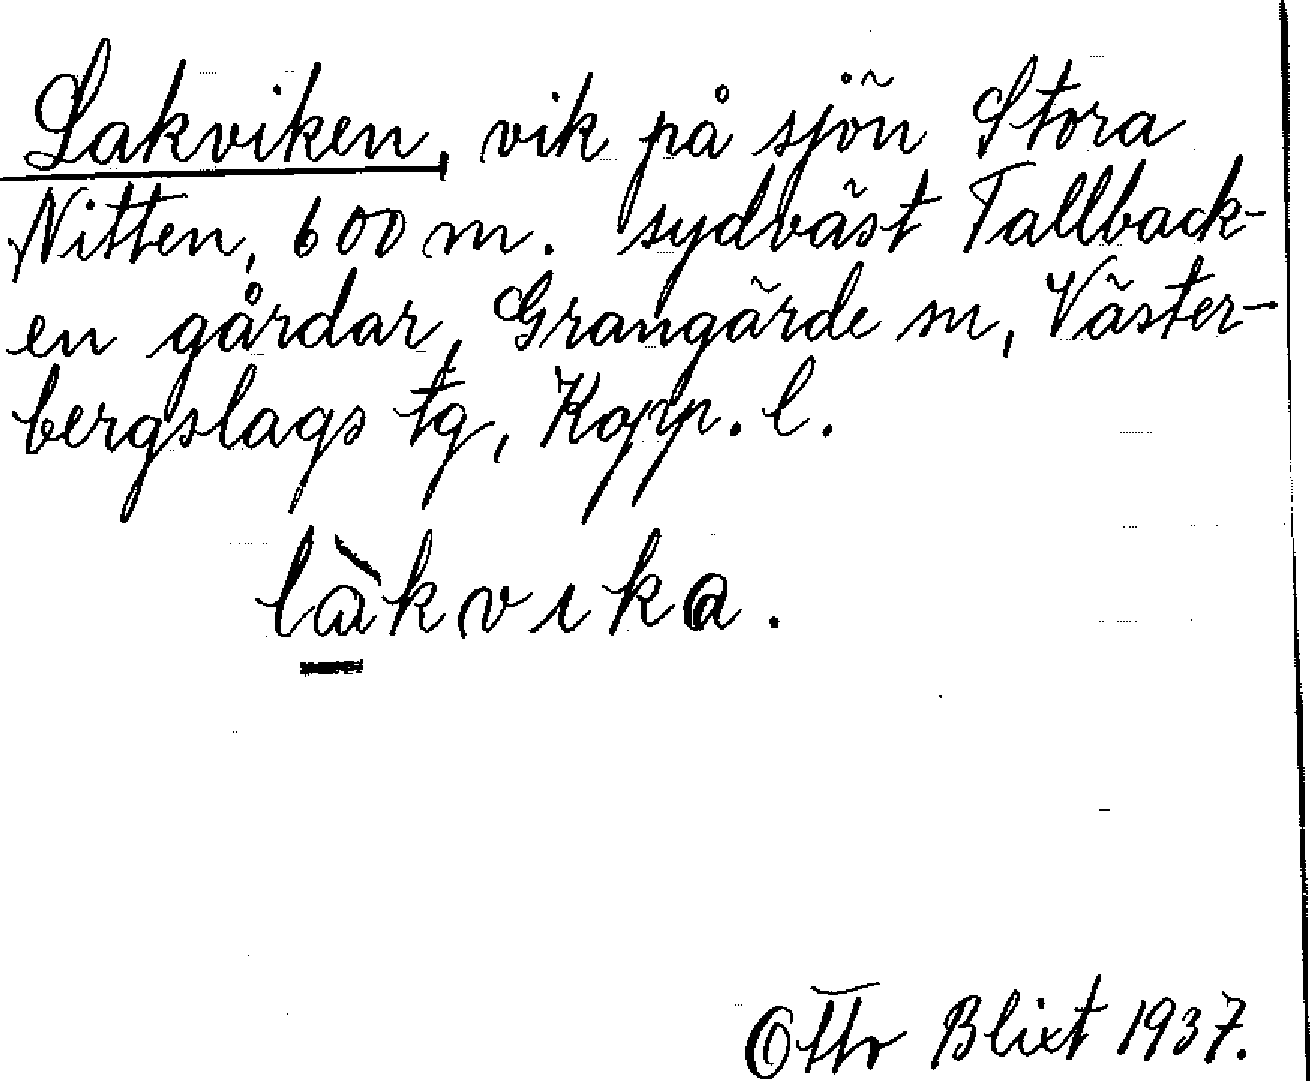 Lakviken, vik på sjön Stora
Nitten, 600 m. sydväst Tallback-
en gårdar, Grangärde sn, Väster-
bergslags tg, Kopp. l.
làkvika.
Otto Blixt 1937.